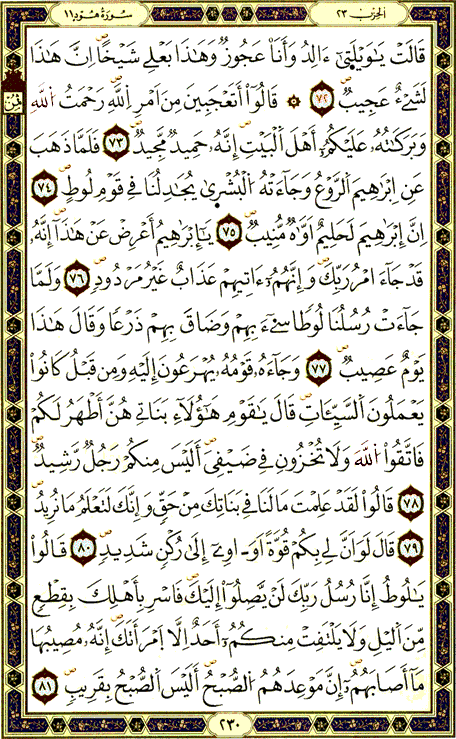 الحِزب ٢٣
سُورَةُ هُود ١١
قَالَتْ يَٰوَيْلَتِىٰٓ ءَالِدُ وَأَنَا عَجُوزٌ وَهَٰذَا بَعْلِے شَيْخاً اِنَّ هَٰذَا
لَشَےْءٌ عَجِيبٌ ٧٢ ۞ قَالُوٓاْ أَتَعْجَبِينَ مِنَ اَمْرِ اِ۬للَّهِ رَحْمَتُ اُ۬للَّهِ
وَبَرَكَٰتُهُۥ عَلَيْكُمُۥٓ أَهْلَ اَ۬لْبَيْتِ إِنَّهُۥ حَمِيدٌ مَّجِيدٌ ٧٣ فَلَمَّا ذَهَبَ
عَنِ اِبْرَٰهِيمَ اَ۬لرَّوْعُ وَجَآءَتْهُ اُ۬لْبُشْر۪ىٰ يُجَٰدِلُنَا فِے قَوْمِ لُوطٍ ٧٤
اِنَّ إِبْرَٰهِيمَ لَحَلِيمٌ اَوَّٰهٌ مُّنِيبٌ ٧٥ يَٰٓإِبْرَٰهِيمُ أَعْرِضْ عَنْ هَٰذَآ إِنَّهُۥ
قَدْ جَآءَ امْرُ رَبِّكَ وَإِنَّهُمُۥٓ ءَاتِيهِمْ عَذَابٌ غَيْرُ مَرْدُودٍ ٧٦ وَلَمَّا
جَآءَتْ رُسُلُنَا لُوطاً سِےٓءَ بِهِمْ وَضَاقَ بِهِمْ ذَرْعاً وَقَالَ هَٰذَا
يَوْمٌ عَصِيبٌ ٧٧ وَجَآءَهُۥ قَوْمُهُۥ يُهْرَعُونَ إِلَيْهِ وَمِن قَبْلُ كَانُواْ
يَعْمَلُونَ اَ۬لسَّيِّـَٔاتِ قَالَ يَٰقَوْمِ هَٰٓؤُلَآءِ بَنَاتِے هُنَّ أَطْهَرُ لَكُمْ
فَاتَّقُواْ اُ۬للَّهَ وَلَا تُخْزُونِ فِے ضَيْفِىَ أَلَيْسَ مِنكُمْ رَجُلٌ رَّشِيدٌ
٧٨ قَالُواْ لَقَدْ عَلِمْتَ مَا لَنَا فِے بَنَاتِكَ مِنْ حَقٍّ وَإِنَّكَ لَتَعْلَمُ مَا نُرِيدُ
٧٩ قَالَ لَوَ اَنَّ لِے بِكُمْ قُوَّةً اَوَ اٰوِےٓ إِلَىٰ رُكْنٍ شَدِيدٍ ٨٠ قَالُواْ
يَٰلُوطُ إِنَّا رُسُلُ رَبِّكَ لَنْ يَّصِلُوٓاْ إِلَيْكَ فَاسْرِ بِأَهْلِكَ بِقِطْعٍ
مِّنَ اَ۬ليْلِ وَلَا يَلْتَفِتْ مِنكُمُۥٓ أَحَدٌ اِلَّا اَ۪مْرَأَتَكَ إِنَّهُۥ مُصِيبُهَا
مَآ أَصَابَهُمُۥٓ إِنَّ مَوْعِدَهُمُ اُ۬لصُّبْحُ أَلَيْسَ اَ۬لصُّبْحُ بِقَرِيبٍ ٨١
٢٣٠